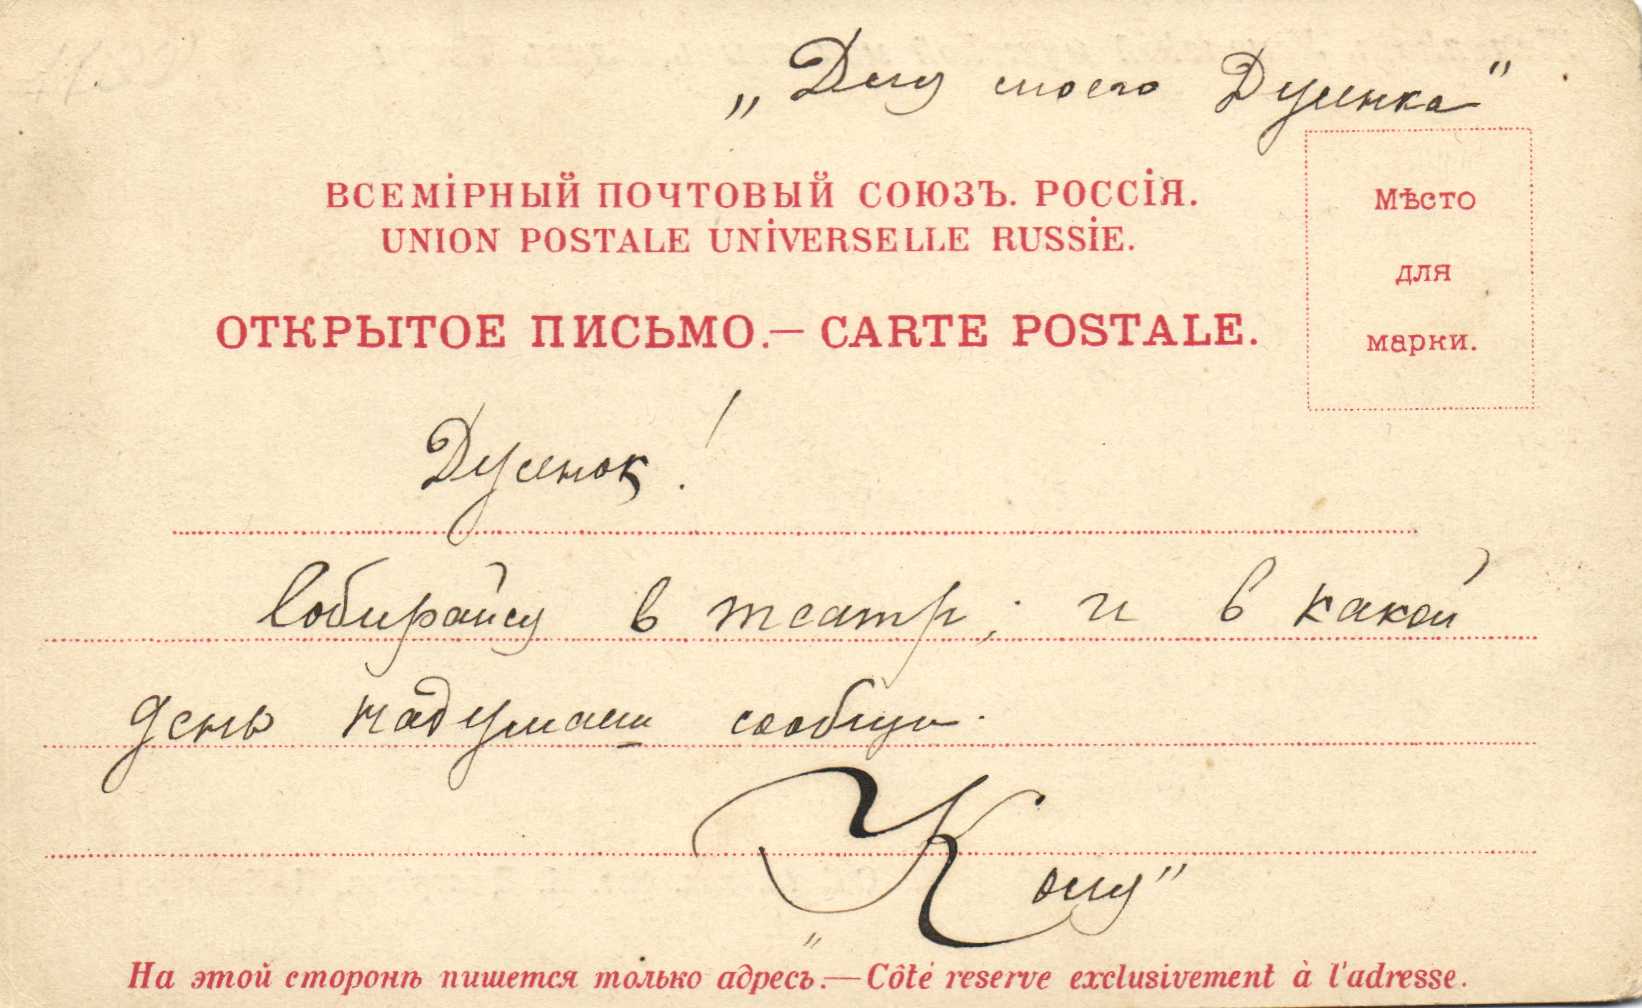 „Для моего Дусенка"
ВСЕМІРНЫЙ ПОЧТОВЫЙ СОЮЗЪ. РОССІЯ.
UNION POSTALE UNIVERSELLE RUSSIE.
ОТКРЫТОЕ ПИСЬМО.— CARTE POSTALE.
Мѣсто
для
марки.
Дусенок!
Собирайся в театр; и в какой
день надумаеш сообщи.
„Коля"
На этой сторонѣ пишется только адресъ.—Côté reserve exclusivement à l'adresse.